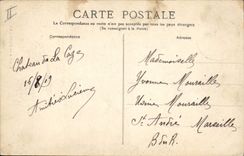 CARTE POSTALE
La Correspondance au recto n'est pas acceptée par tous les pays étrangers
(Se renseigner à la Poste)
Correspondance
Adresse
Chateau de La
15/8/19
Mademoiselle
Yvonne Mouraille
Usine Mouraille
St André Marseille
B du R.